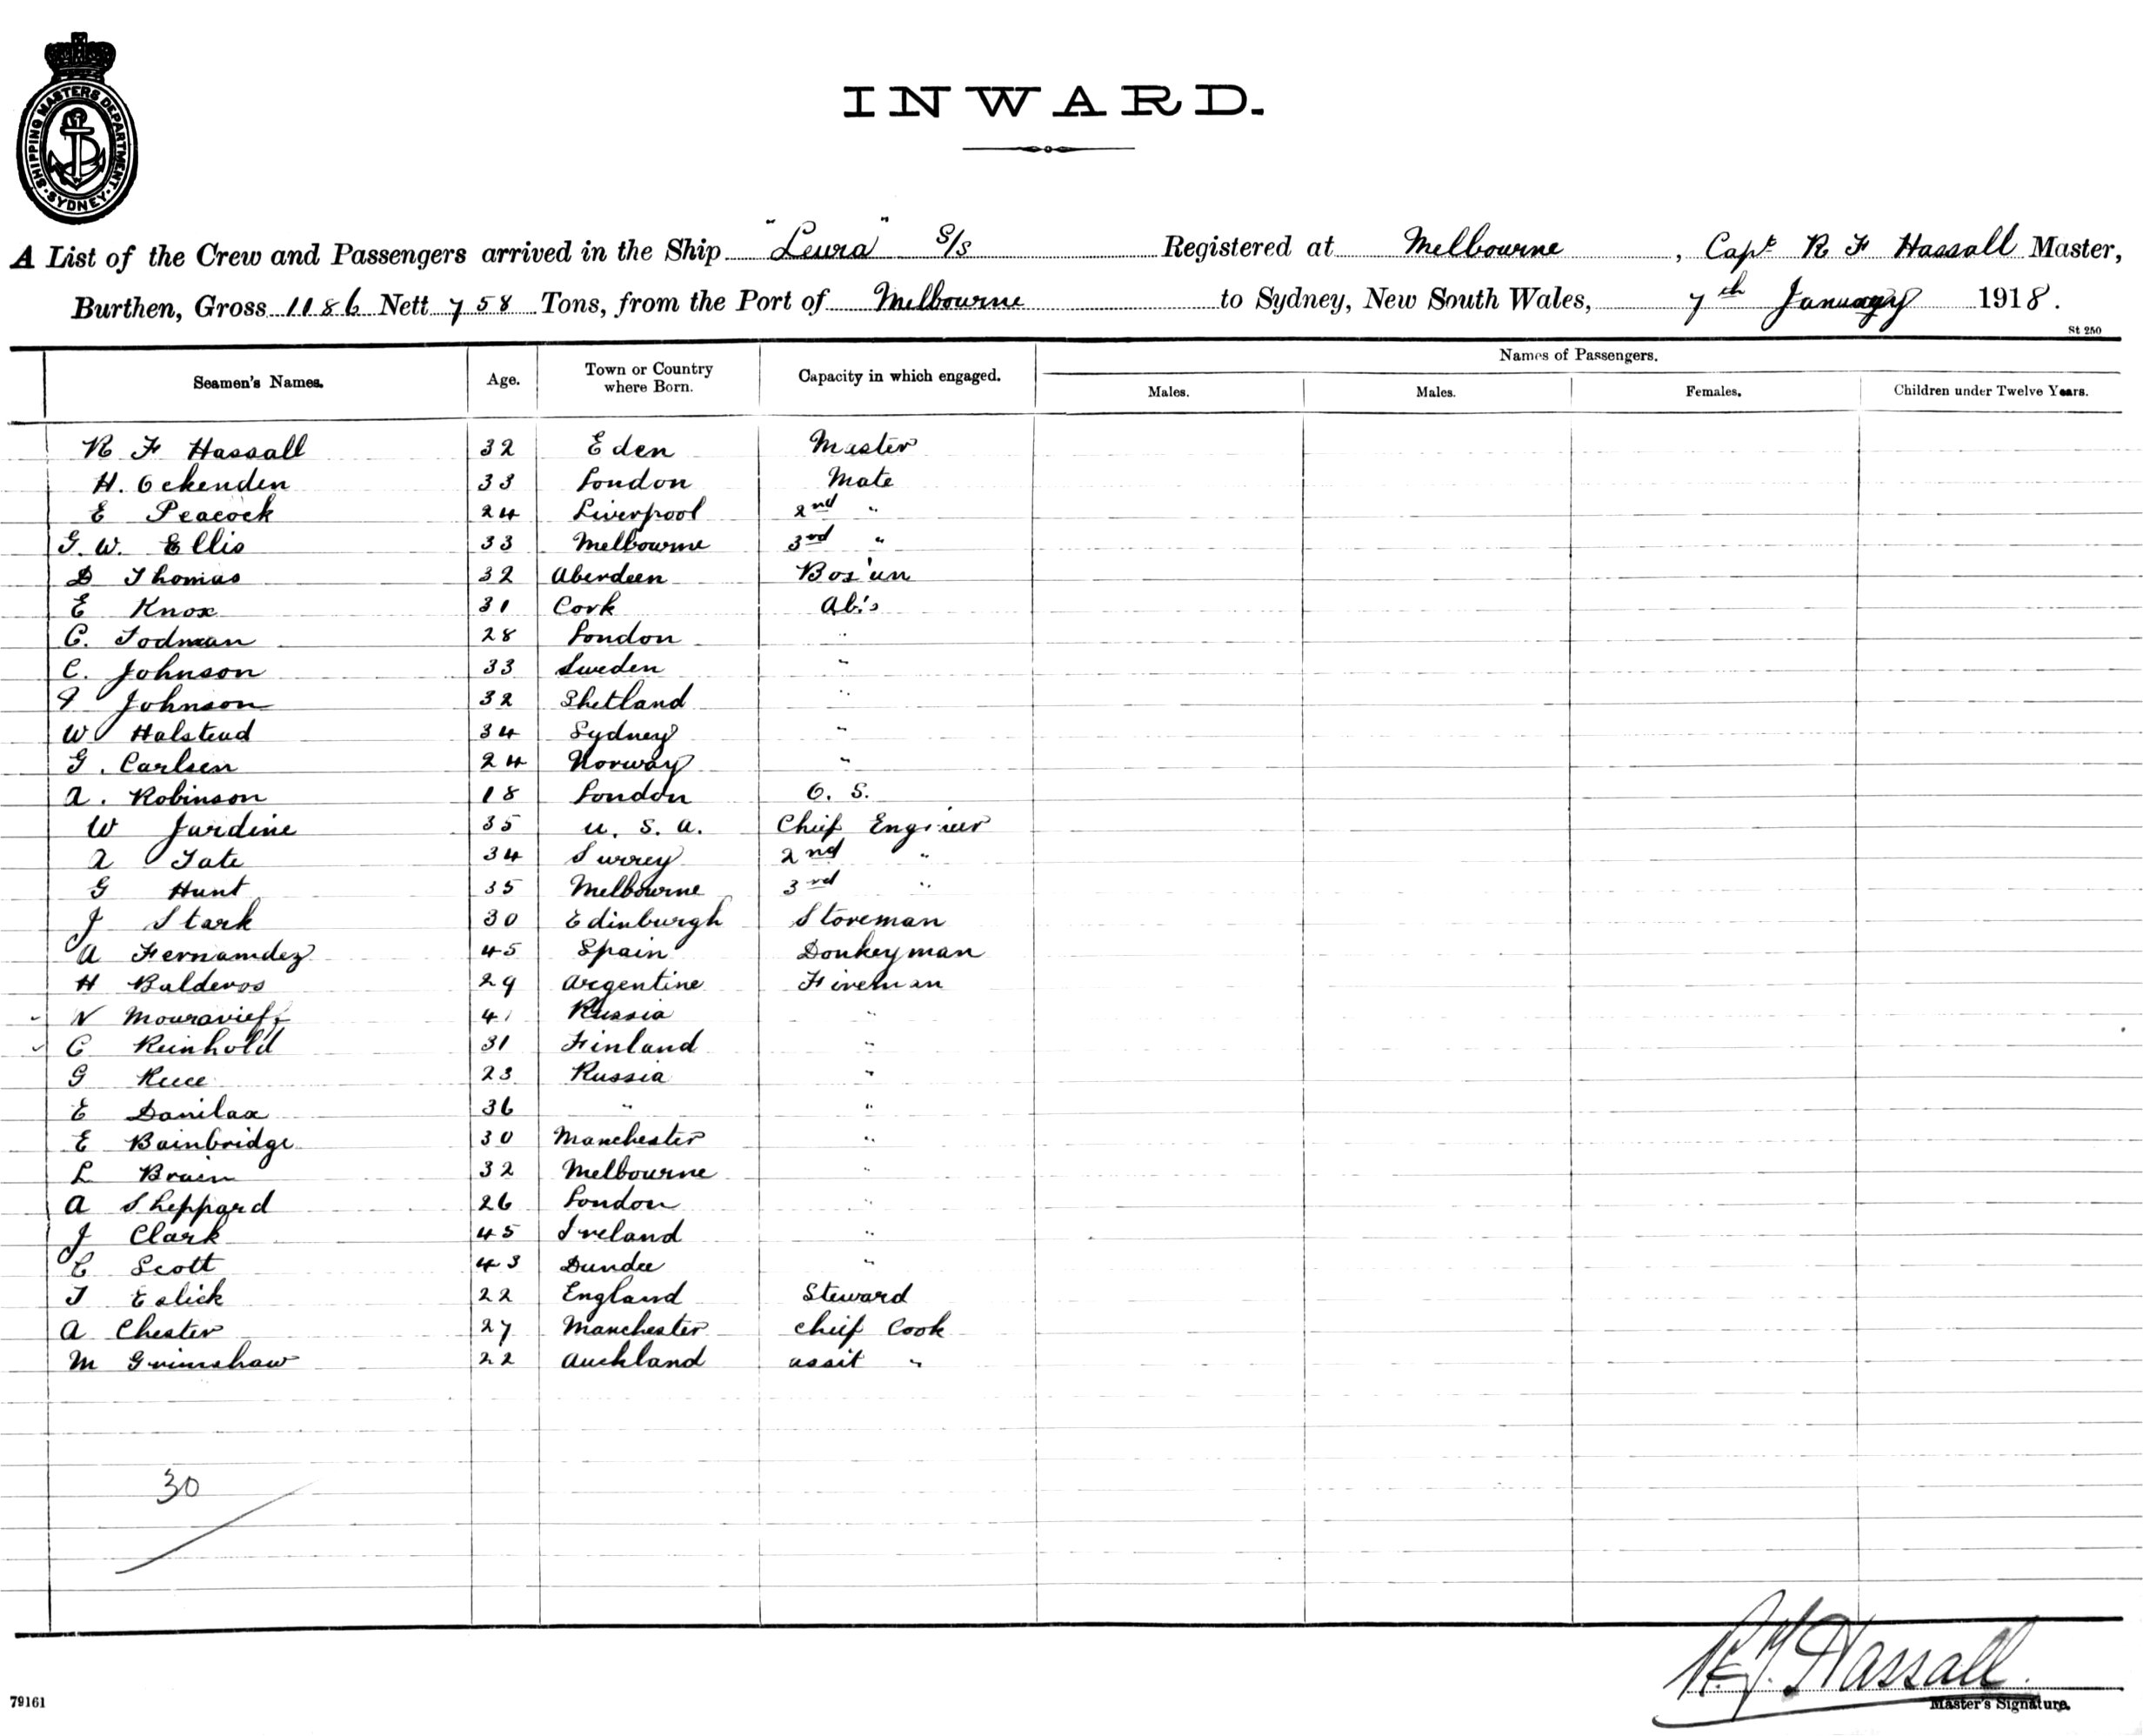 SHIPPING MASTERS DEPARTMENT
SYDNEY
INWARD.
A List of the Crew and Passengers arrived in the Ship "Leura" S/S Registered at Melbourne, Capt R F Hassall Master,
Burthen, Gross 1186 Nett 758 Tons, from the Port of Melbourne to Sydney, New South Wales, 7th January 1918.
St 250
Seamen's Names. Age. Town or Country where Born. Capacity in which engaged. Names of Passengers.
Males. Males. Females. Children under Twelve Years.
R F Hassall 32 Eden Master
H. Ockenden 33 London Mate
E Peacock 24 Liverpool 2nd "
G. W. Ellis 33 Melbourne 3rd "
D Thomas 32 Aberdeen Bos'un
E Knox 31 Cork Ab's
C. Todman 28 London "
C. Johnson 33 Sweden "
Johnson 32 Shetland "
W Halstead 34 Sydney "
G. Carlsen 24 Norway "
A. Robinson 18 London O. S.
W Jardine 35 U. S. A. Chief Engineer
A Tate 34 Surrey 2nd "
G Hunt 35 Melbourne 3rd "
J Stark 30 Edinburgh Storeman
A Fernamdez 45 Spain Donkeyman
H Balderos 29 Argentine Fireman
N Mouravieff 41 Russia "
C Reinhold 31 Finland "
G Reece 23 Russia "
E Danilax 36 " "
E Bainbridge 30 Manchester "
L Brain 32 Melbourne "
A Sheppard 26 London "
J Clark 45 Ireland "
C Scott 43 Dundee "
T Eslick 22 England Steward
A Chester 27 Manchester Chief Cook
M Grimshaw 22 Auckland assit "
30
R. F. Hassall
Master's Signature.
79161